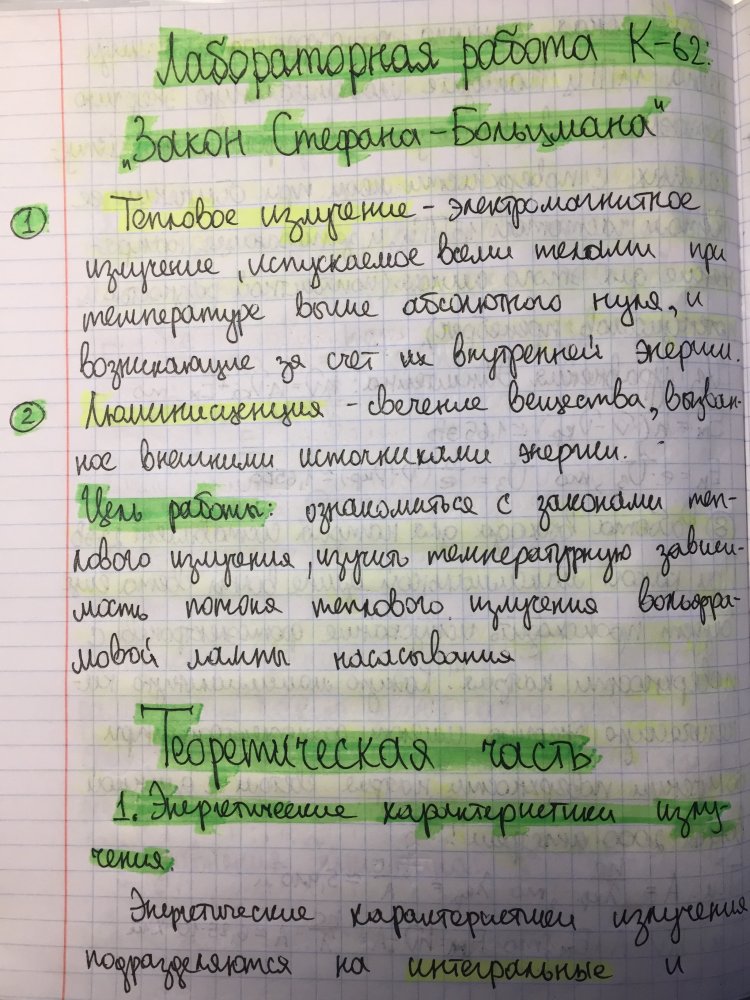 Лабораторная работа К-62:
„Закон Стефана-Больцмана"
① Тепловое излучение - электромагнитное
излучение, испускаемое всеми телами при
температуре выше абсолютного нуля, и
возникающие за счёт их внутренней энергии.
② Люминисценция - свечение вещества, вызван-
ное внешними источниками энергии.
Цель работы: ознакомиться с законами теп-
лового излучения, изучить температурную зависи-
мость потока теплового излучения вольфра-
мовой лампы накаливания
Теоретическая часть
1. Энергетические характеристики излу-
чения:
Энергетические характеристики излучения
подразделяются на интегральные и